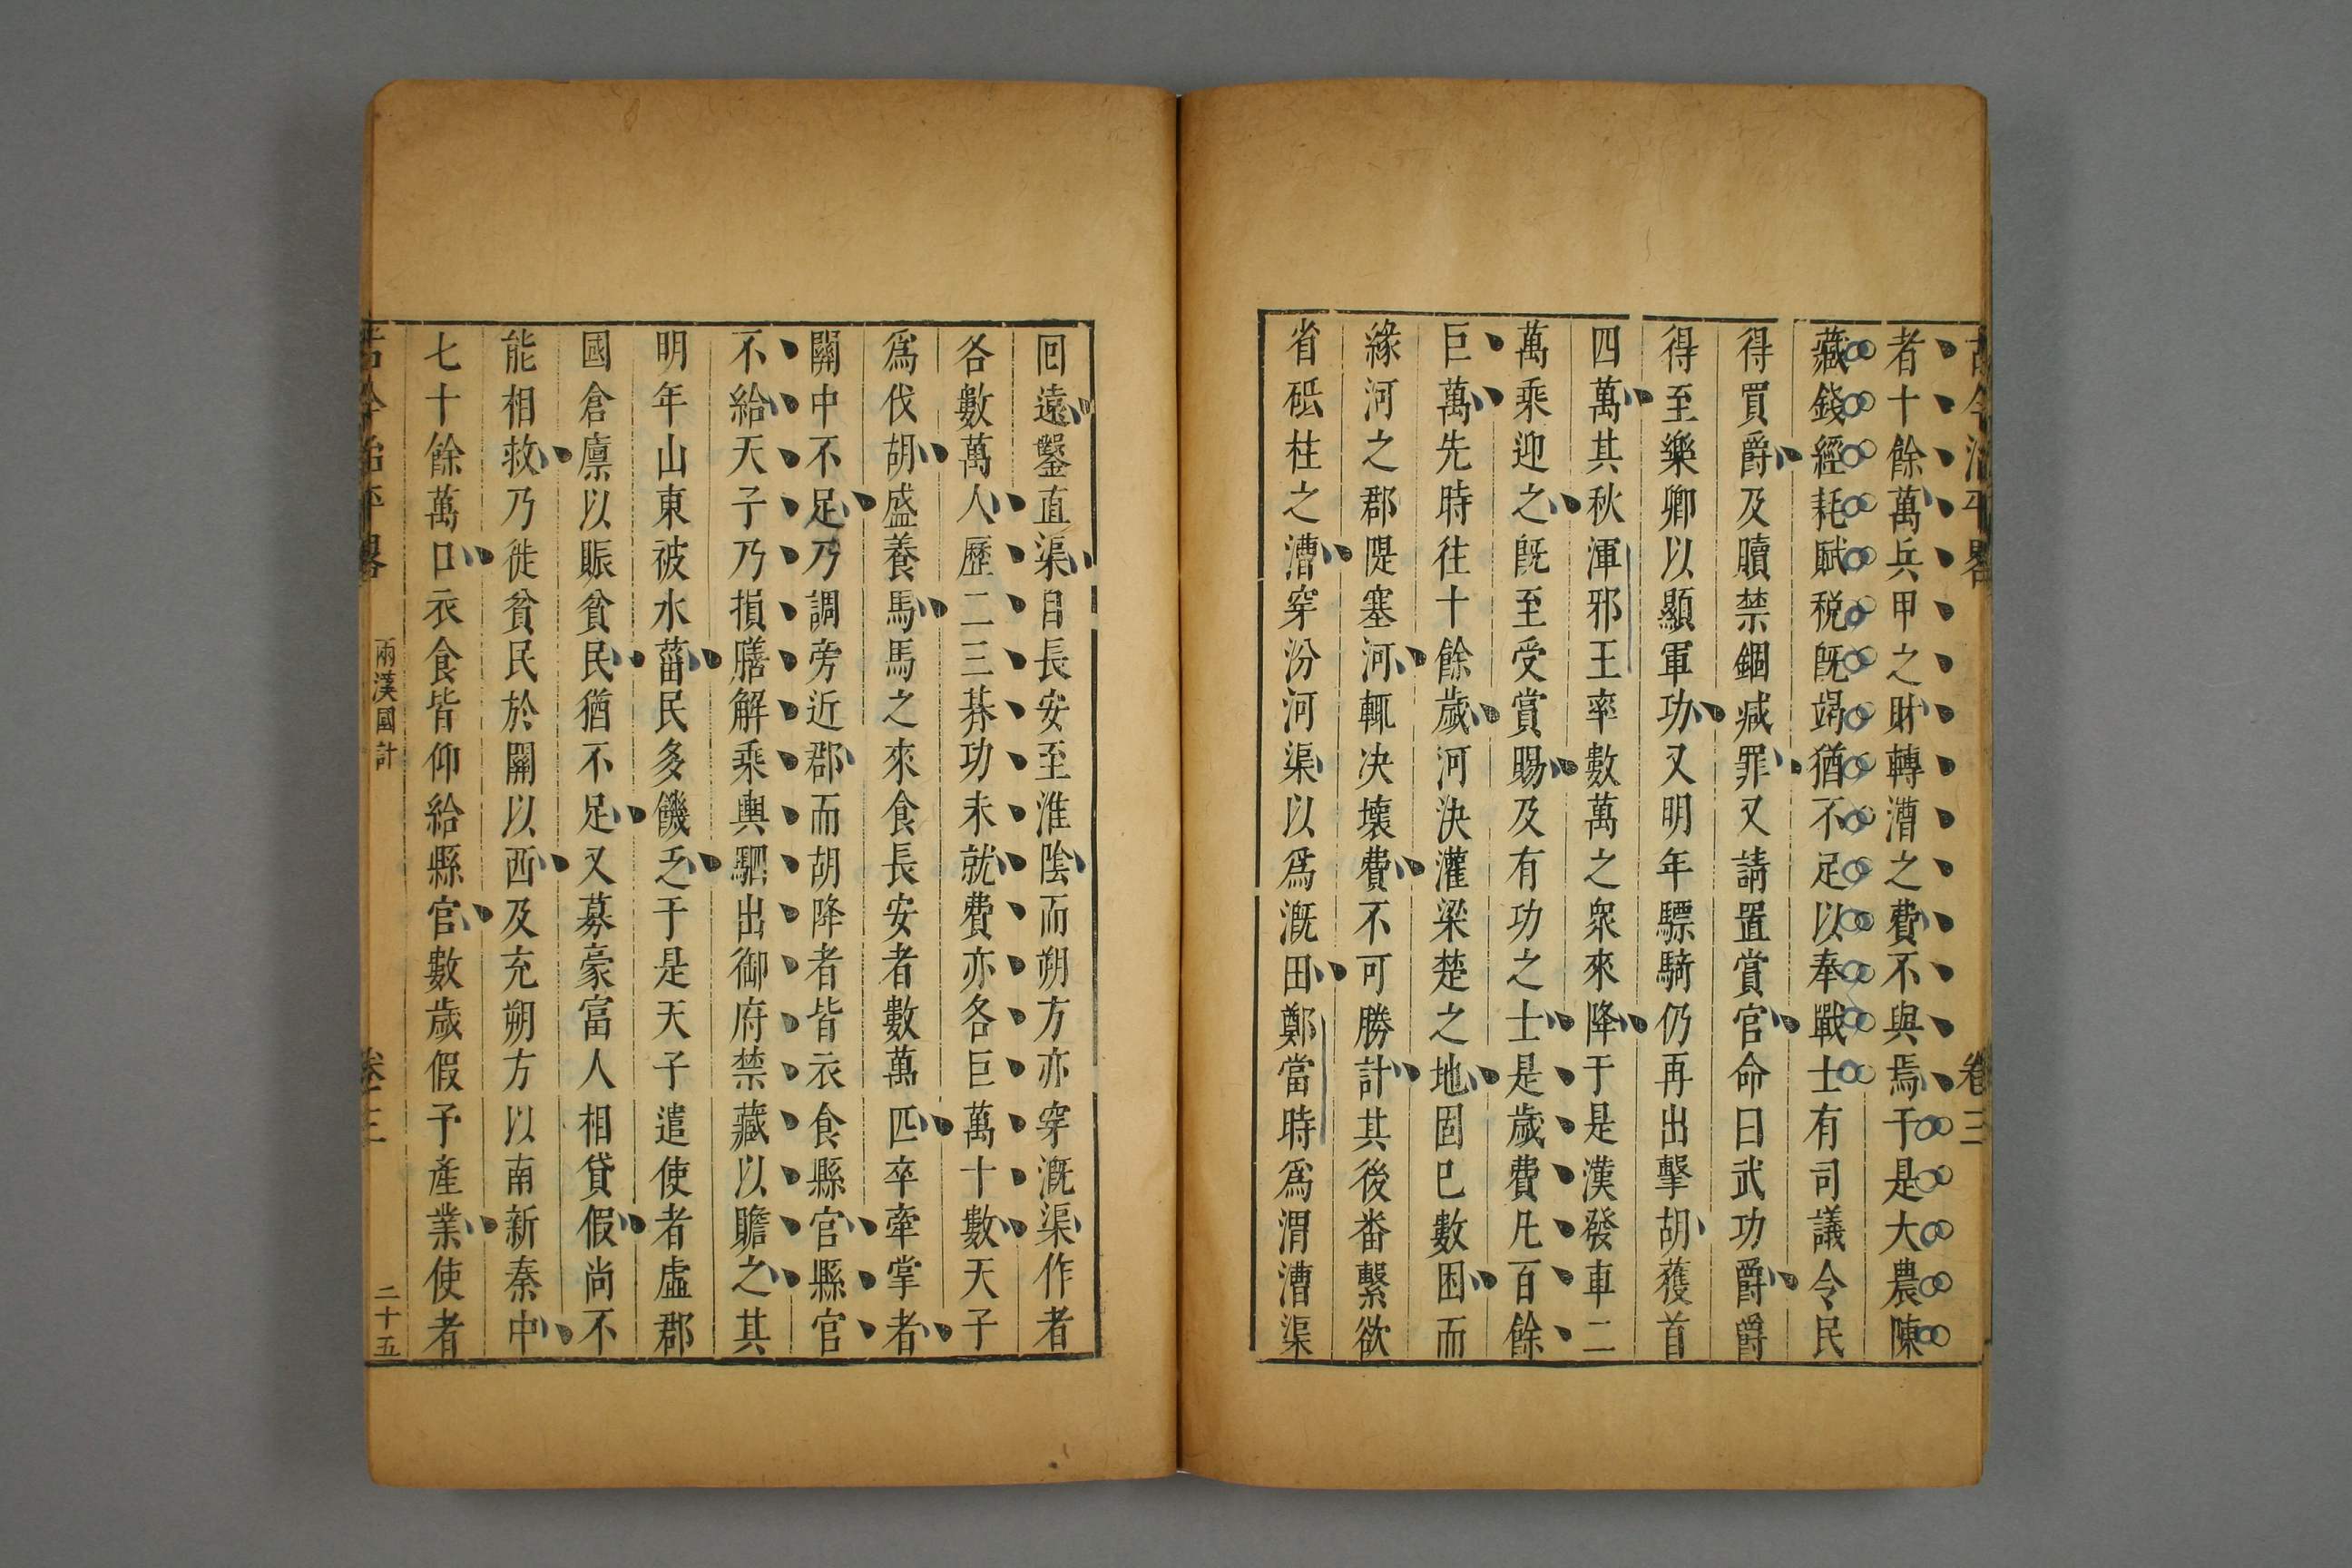 古今治平畧
卷三
者十餘萬兵甲之財轉漕之費不與焉于是大農陳
藏錢經耗賦稅既竭猶不足以奉戰士有司議令民
得買爵及贖禁錮臧罪又請置賞官命曰武功爵爵
得至樂卿以顯軍功又明年驃騎仍再出擊胡獲首
四萬其秋渾邪王率數萬之衆來降于是漢發車二
萬乘迎之既至受賞賜及有功之士是歲費凡百餘
巨萬先時往十餘歲河決灌梁楚之地固巳數困而
緣河之郡隄塞河輒決壞費不可勝計其後畨繫欲
省砥柱之漕穿汾河渠以爲漑田鄭當時爲渭漕渠
回遠鑿直渠自長安至淮陰而朔方亦穿漑渠作者
各數萬人歷二三朞功未就費亦各巨萬十數天子
爲伐胡盛養馬馬之來食長安者數萬匹卒牽掌者
關中不足乃調旁近郡而胡降者皆衣食縣官縣官
不給天子乃損膳解乘輿駟出御府禁藏以贍之其
明年山東被水菑民多饑乏于是天子遣使者虛郡
國倉廪以賑貧民猶不足又募豪富人相貸假尚不
能相救乃徙貧民於關以西及充朔方以南新秦中
七十餘萬口衣食皆仰給縣官數歲假予產業使者
古今治平畧
兩漢國計
卷三
二十五